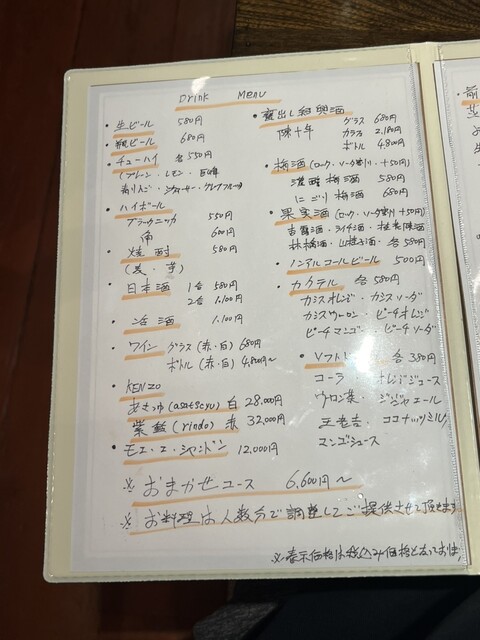 Drink Menu
・生ビール 580円
・瓶ビール 680円
・チューハイ 各550円
(プレーン・レモン・巨峰
青りんご・シークワーサー・グレープフルーツ)
・ハイボール
ブラックニッカ 550円
角 600円
・焼酎 580円
(麦・芋)
・日本酒 1合 580円
2合 1,100円
・冷酒 1,100円
・ワイン グラス(赤・白) 680円
ボトル(赤・白) 4,800円~
・KENZO
あさつゆ(asatsuyu) 白 28,000円
紫鈴(rindo) 赤 32,000円
・モエ・エ・シャンドン 12,000円
※おまかせコース 6,600円~
※お料理は人数分で調整してご提供させて頂きます
・甕出し紹興酒
陳十年 グラス 680円
カラフェ 2,180円
ボトル 4,800円
・梅酒(ロック・ソーダ割り +50円)
濃醇梅酒 580円
にごり梅酒 680円
・果実酒(ロック・ソーダ割り +50円)
杏露酒・ライチ酒・桂花陳酒
林檎酒・山楂子酒・各580円
・ノンアルコールビール 500円
・カクテル 各580円
カシスオレンジ・カシスソーダ
カシスウーロン・ピーチオレンジ
ピーチマンゴー・ピーチソーダ
・ソフト 各380円
コーラ オレンジジュース
ウーロン茶・ジンジャエール
王老吉・ココナッツミルク
マンゴジュース
※表示価格は税込み価格となっており